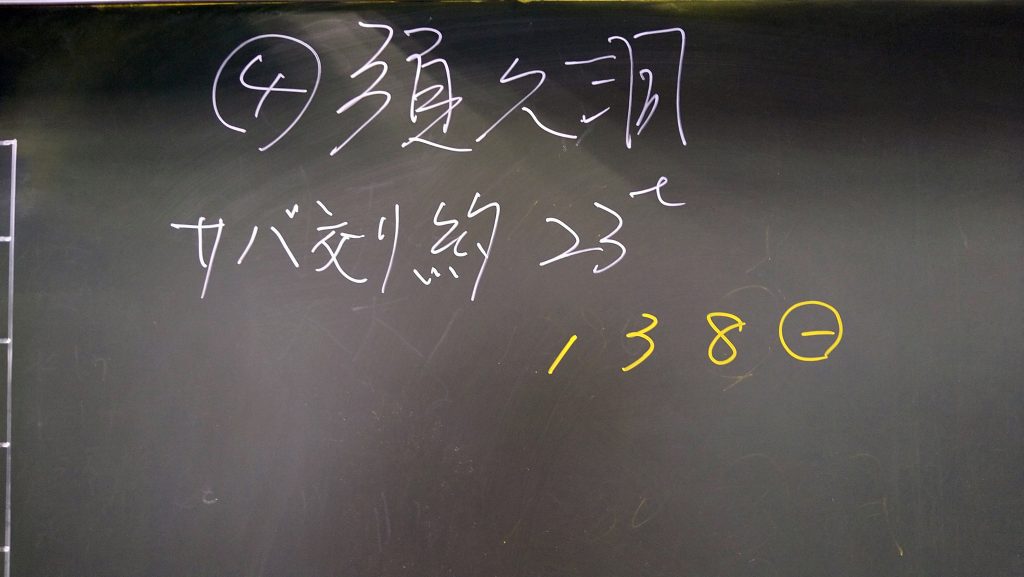 ④須久洞
サバ交り約23t
138㊀